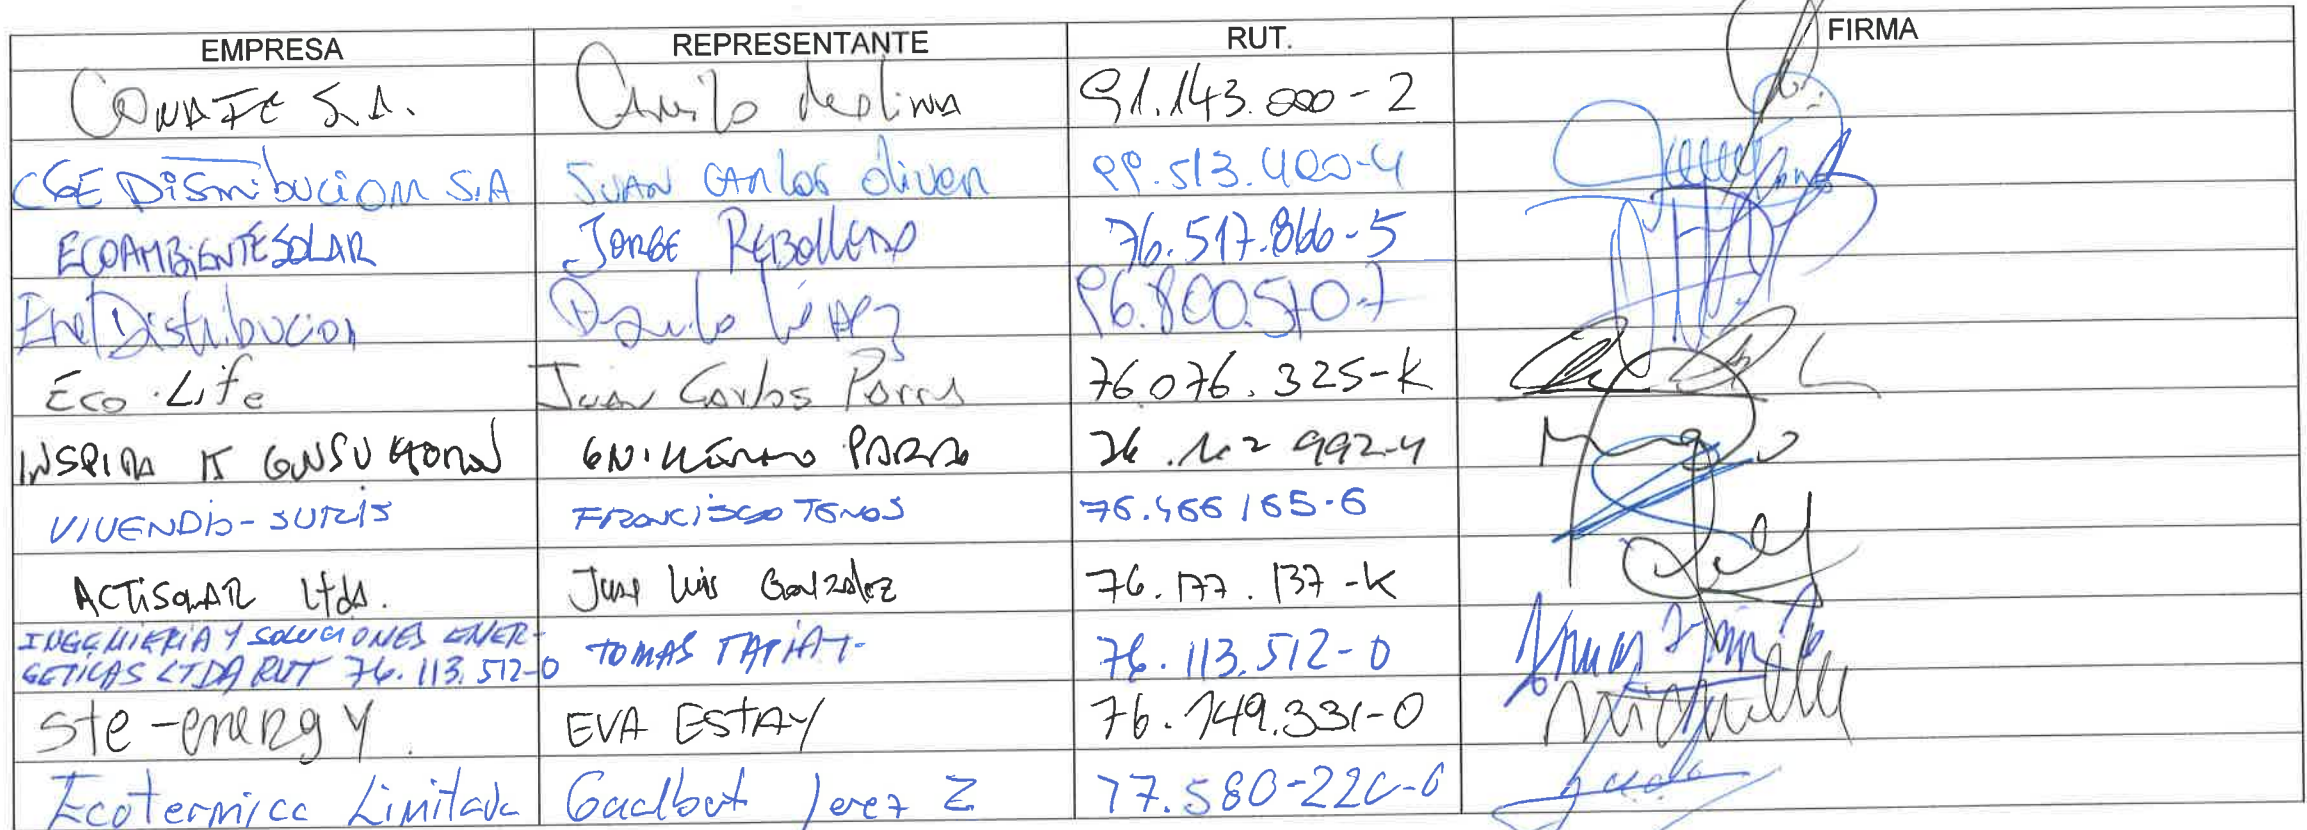 EMPRESA REPRESENTANTE RUT. FIRMA
CONAFE S.A. Camilo Molina 91.143.000-2
CGE Distribucion S.A Juan Carlos Olivers 99.513.400-4
ECOAMBIENTE SOLAR JORGE REBOLLEDO 76.517.866-5
Enel Distribucion Danilo López 96.800.570-7
Eco.Life Juan Carlos Parra 76.076.325-K
INSPIRA IT PARRA 992-4
VIVENDIS - FRANCISCO 76.466165-6
ACTISOLAR Ltda. Jose Luis Gonzalez 76.177.137-K
INGENIERIA Y SOLUCIONES ENER-
GETICAS LTDA RUT 76.113.512-0 TOMAS TAPIA T. 76.113.512-0
Ste-energy. EVA ESTAY 76.149.331-0
Ecotermica Limitada Jerez Z 77.580-220-6